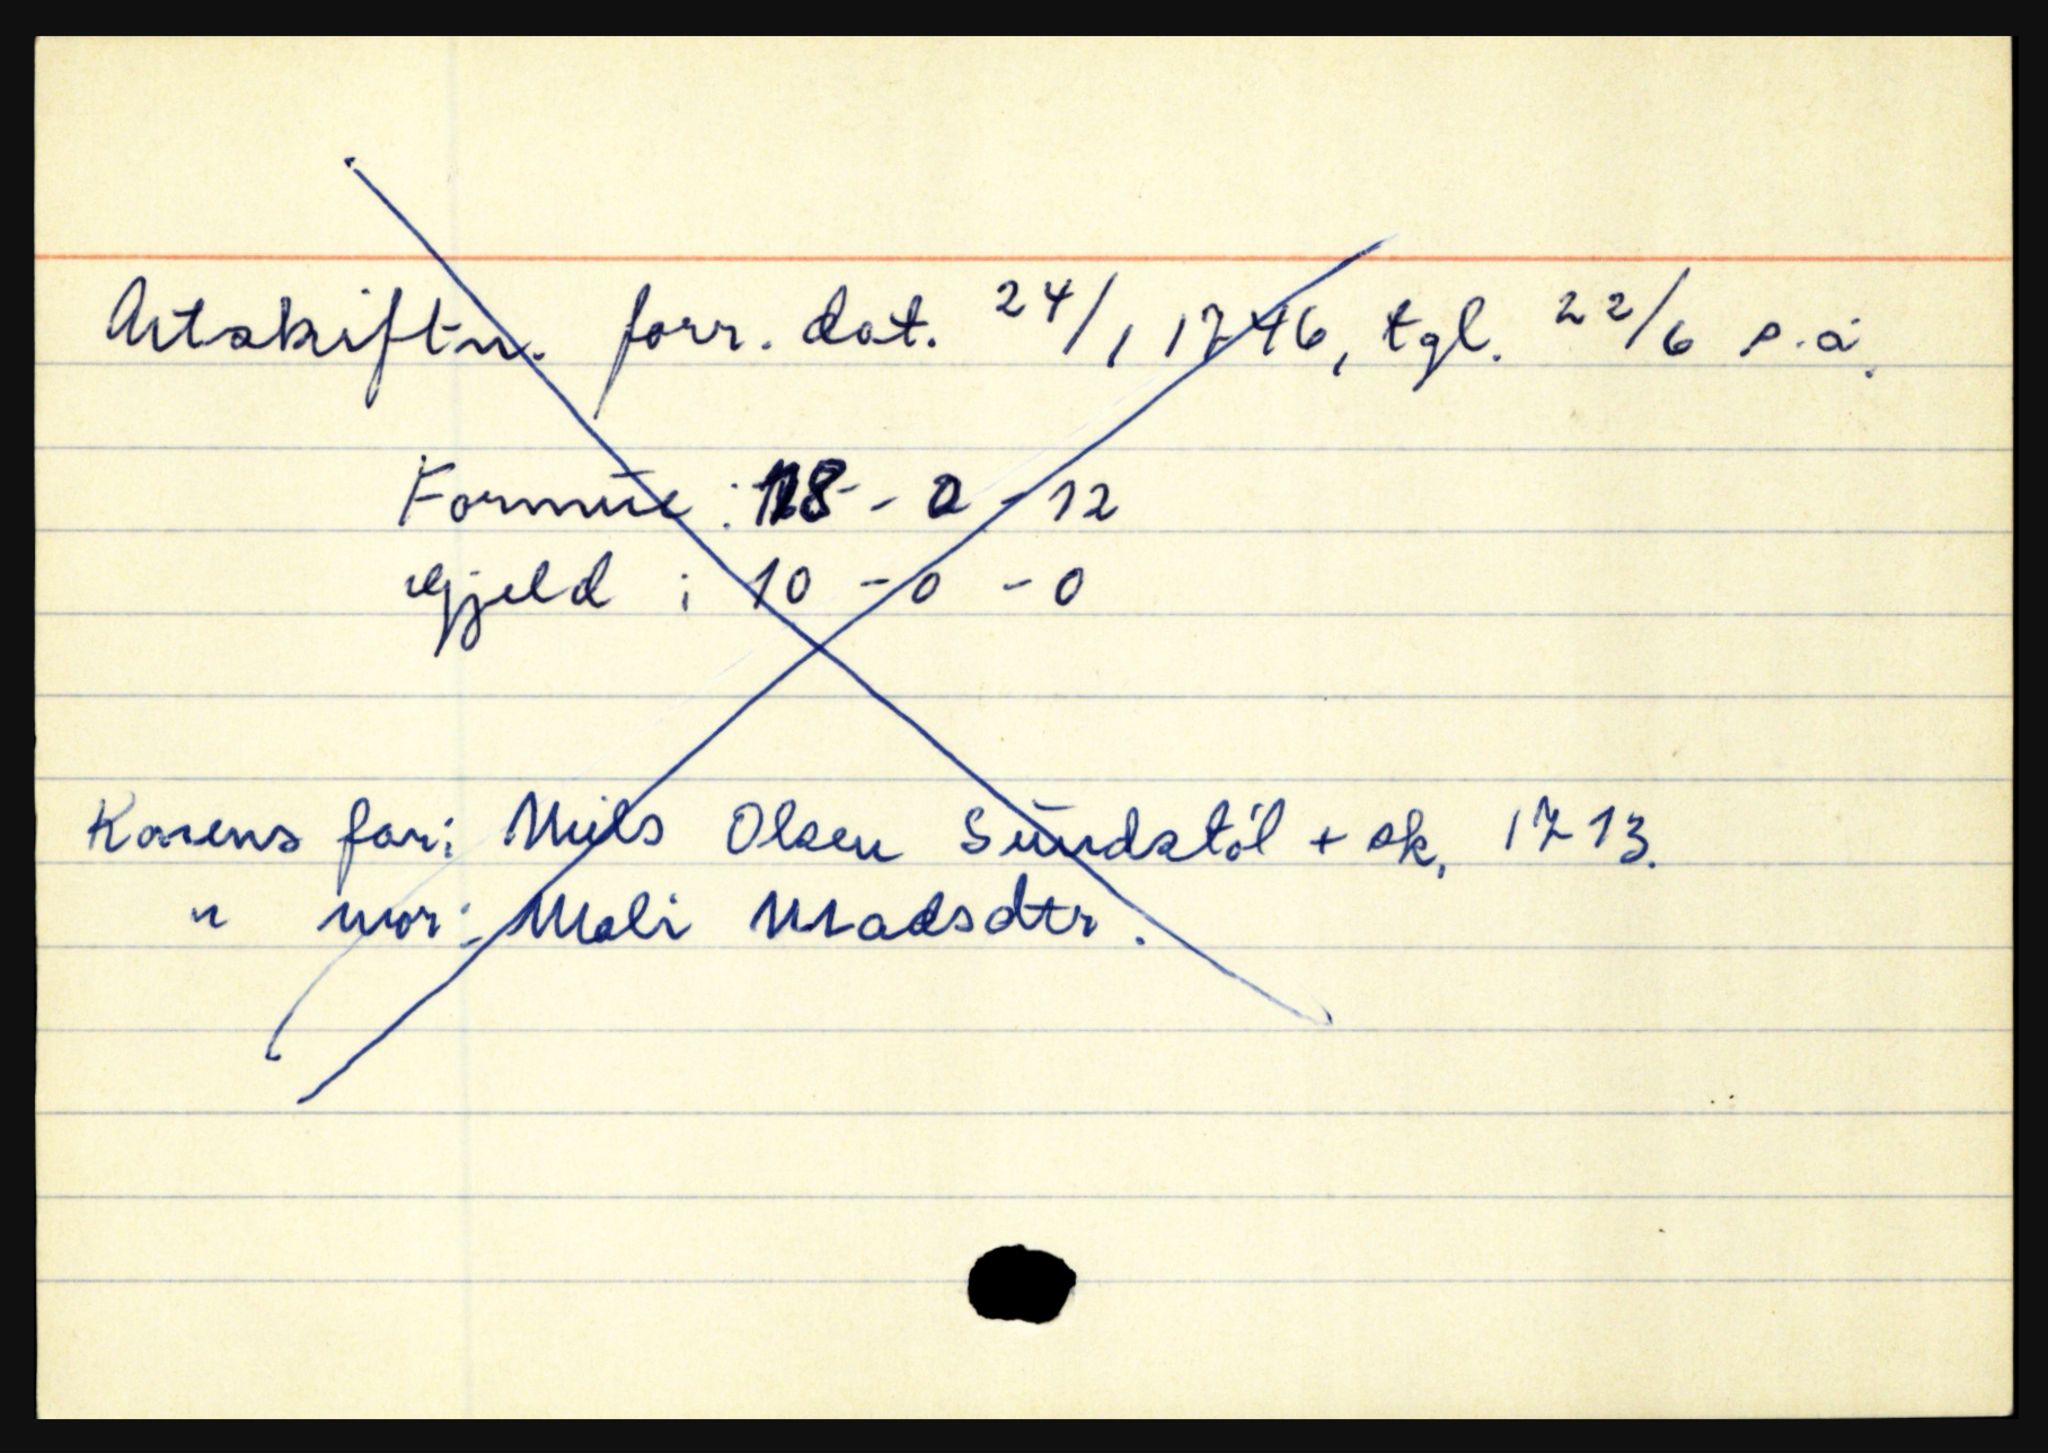 Utskiftn. forr. dat. 24/1 1746, tgl. 22/6 s.å.
Formue : 118 - 0 - 12
Gjeld : 10 - 0 - 0
Karens far: Niels Olsen Sundstöl + sk. 1713.
" mor: Mali Madsdtr.